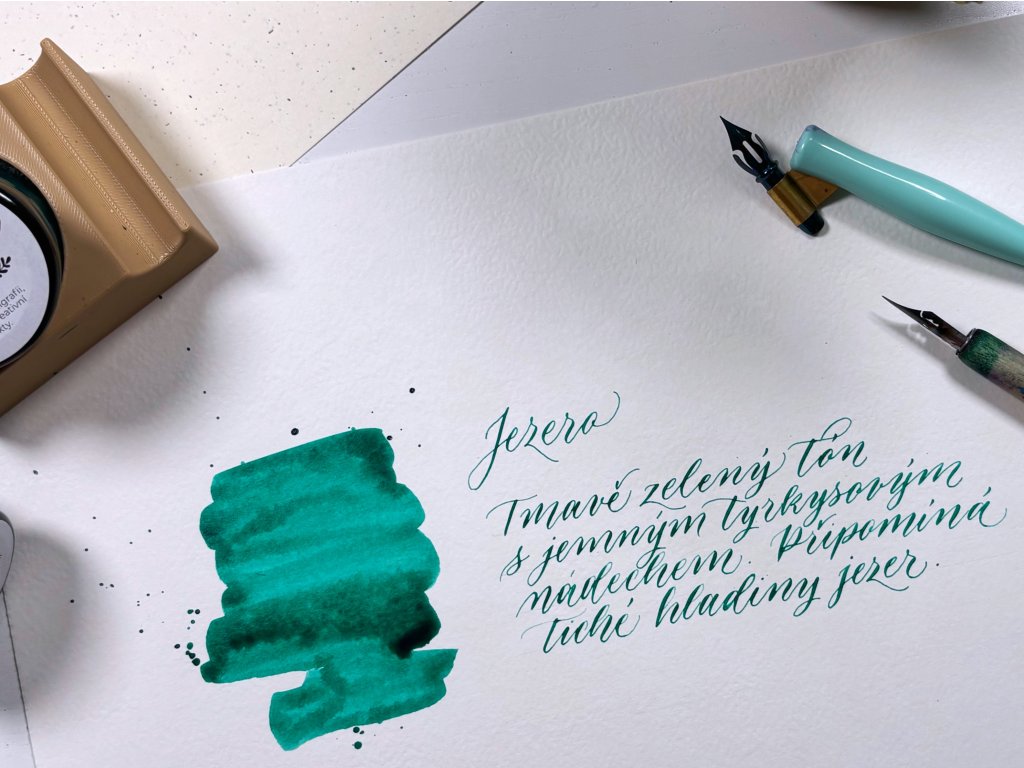 Jezero
Tmavě zelený tón
s jemným tyrkysovým
nádechem. Připomíná
tiché hladiny jezer.